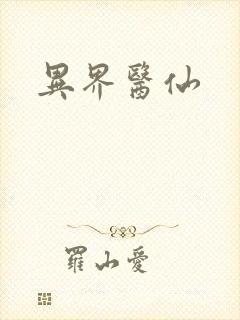 異界醫仙
羅山愛